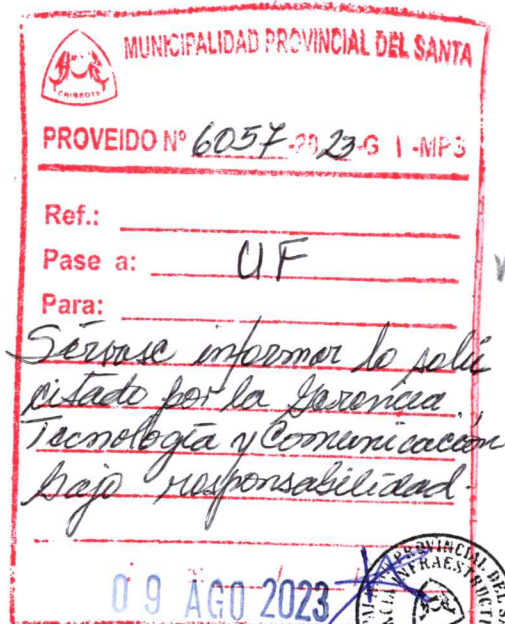 MUNICIPALIDAD PROVINCIAL DEL SANTA
CHIMBOTE
PROVEIDO Nº 6057-2023-G I -MPS
Ref.:
Pase a: UF
Para:
Sírvase informar lo soli
citado por la Gerencia
Tecnología y Comunicación
bajo responsabilidad.
09 AGO 2023
PROVINCIAL DEL
INFRAESTRUCT